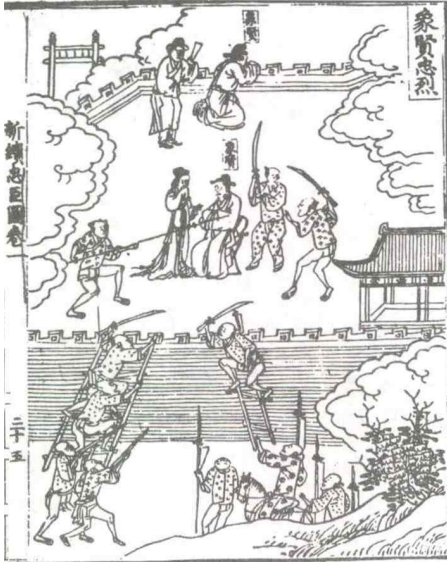 象賢忠烈
象賢
象賢
新續忠臣圖卷一
三十五